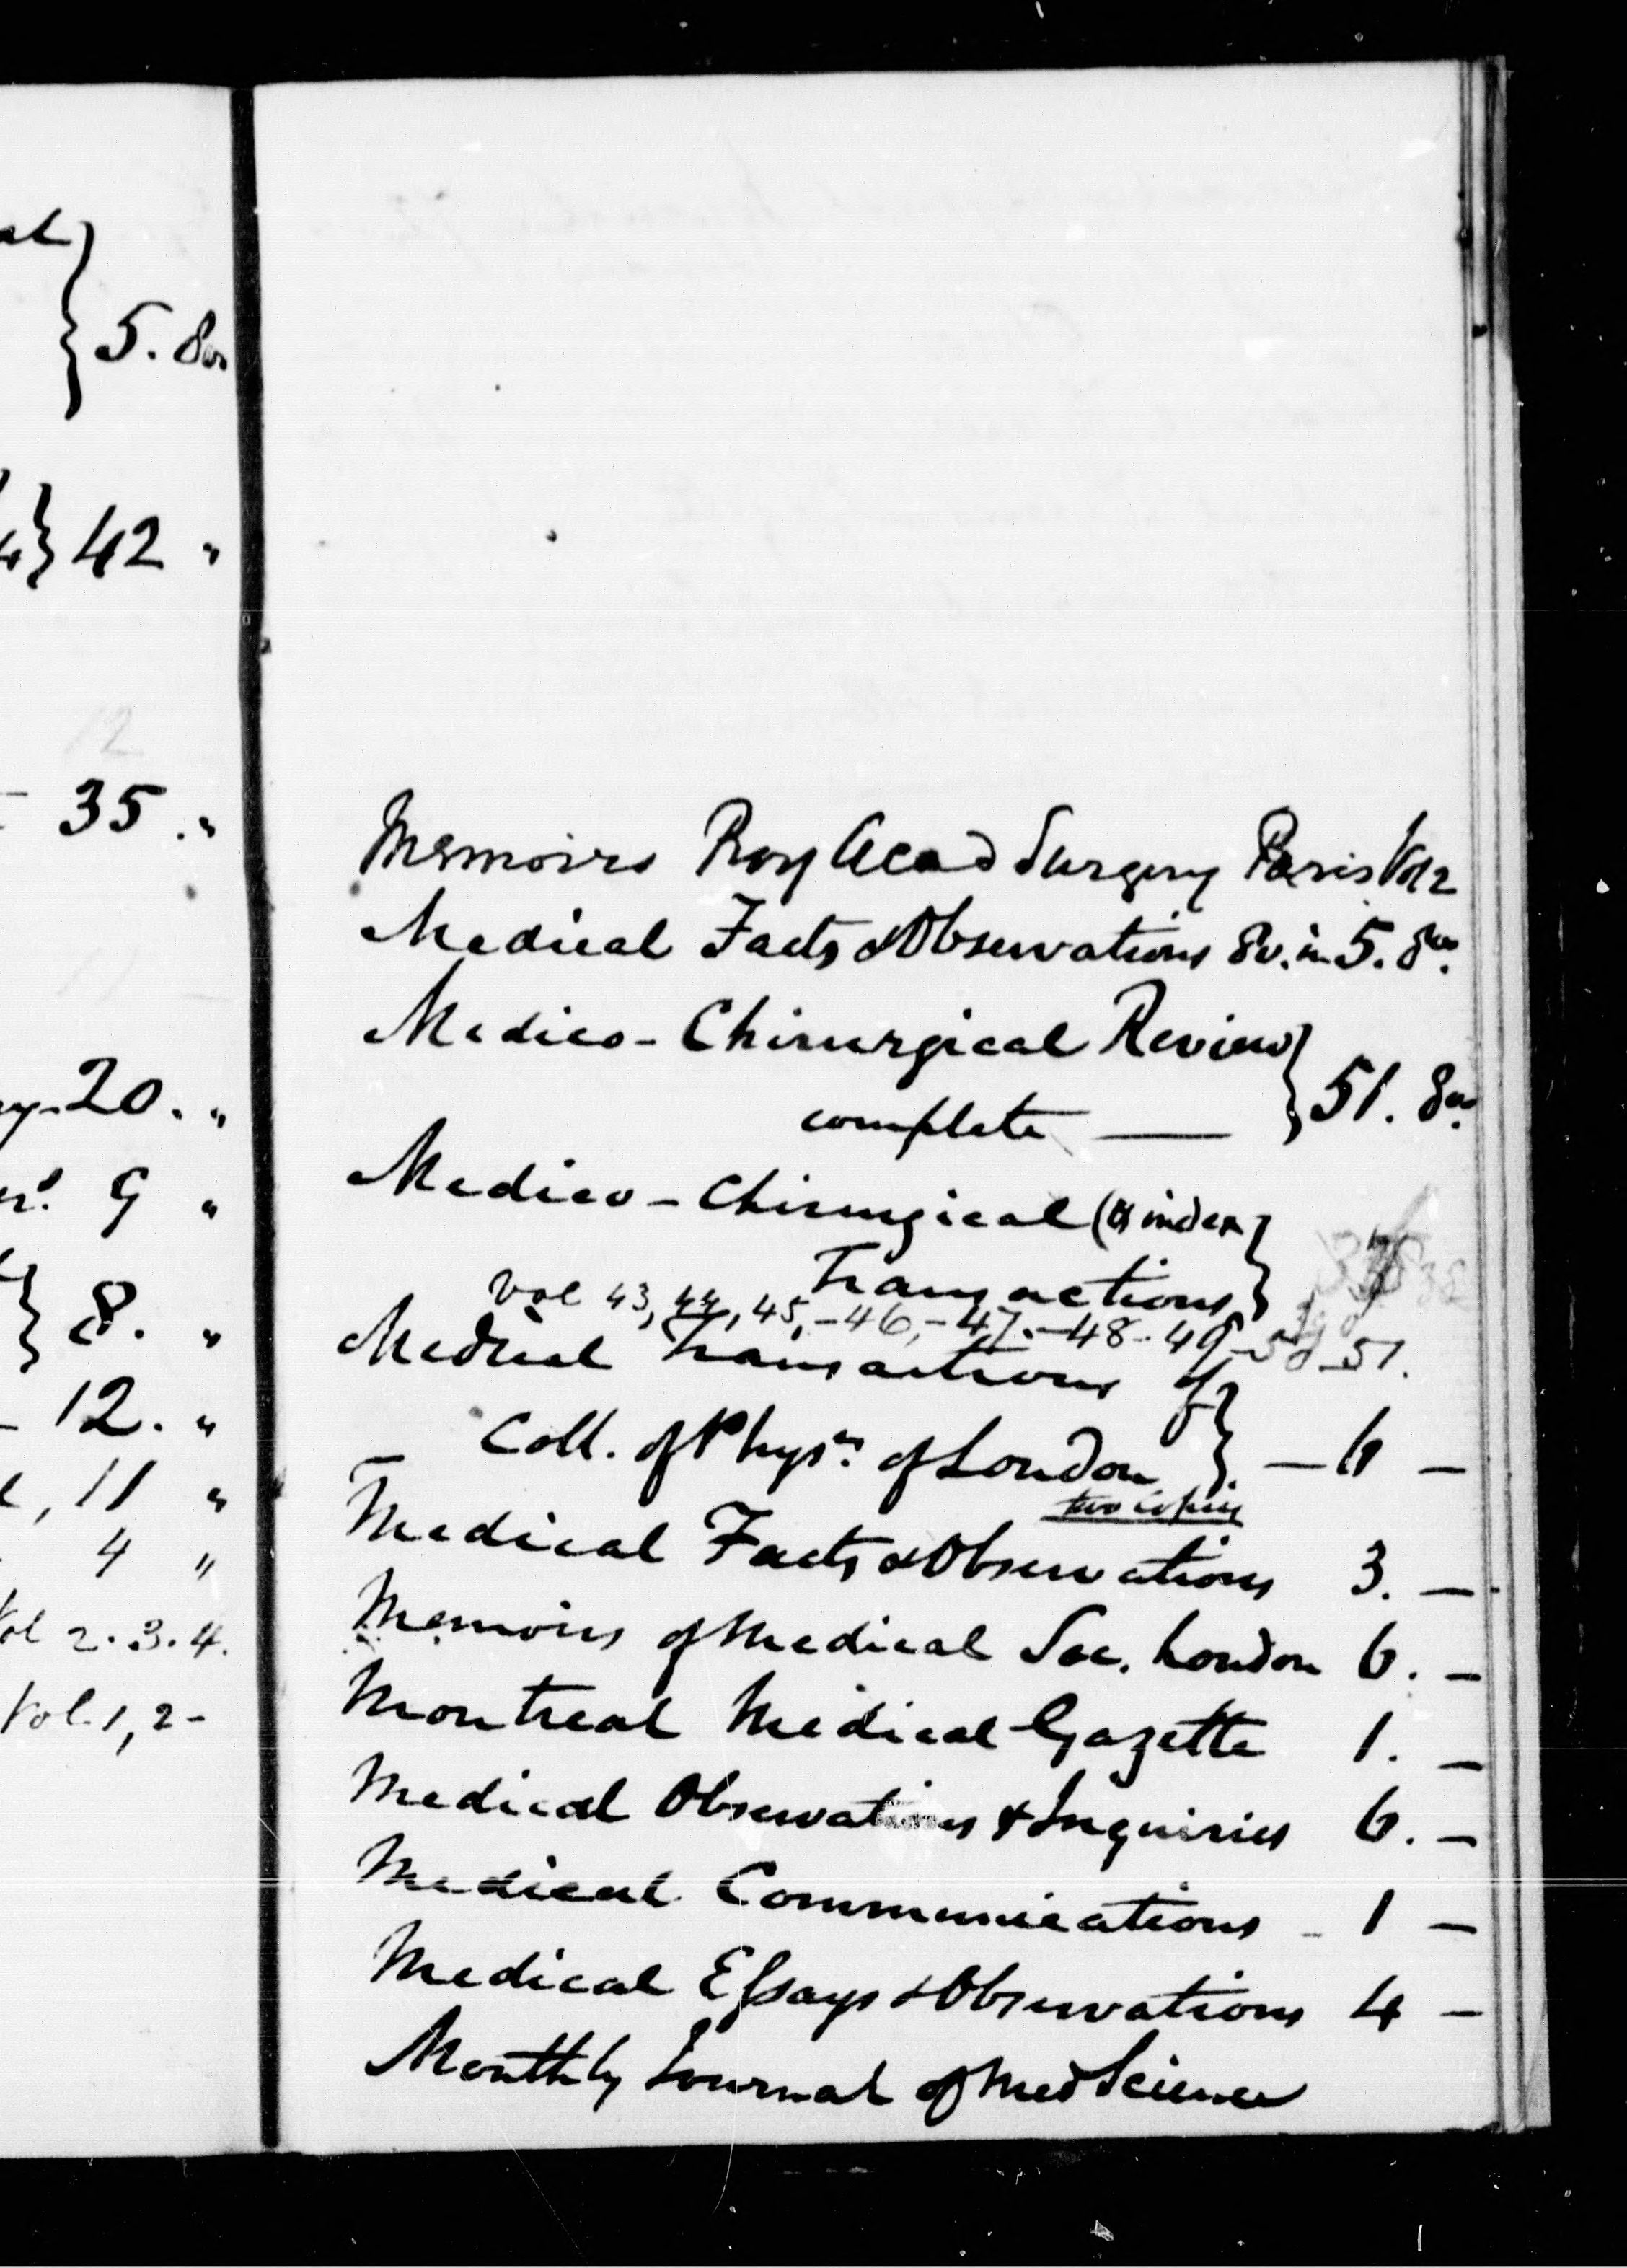 5. 8vo.
42 "
35 . "
20. "
9 "
8. "
12. "
11 "
4 "
Vol 2. 3. 4.
Vol. 1, 2 -
Memoirs Roy Acad Surgery Paris Vol 2
Medical Facts & Observations 8v. in 5. 8vo.
Medico - Chirurgical Review
complete — 51. 8vo.
Medico - Chirurgical (& index
Transactions
Vol 43, 44, 45, - 46, - 47. - 48 - 49 - 50 - 51.
Medical Transactions of
Coll. of Physns. of London — 6 —
two copies
Medical Facts & Observations 3. —
Memoirs of Medical Soc. London 6. —
Montreal Medical Gazette 1. —
Medical Observations & Inquiries 6. —
Medical Communications - 1 —
Medical Essays & Observations 4 —
Monthly Journal of Med Science